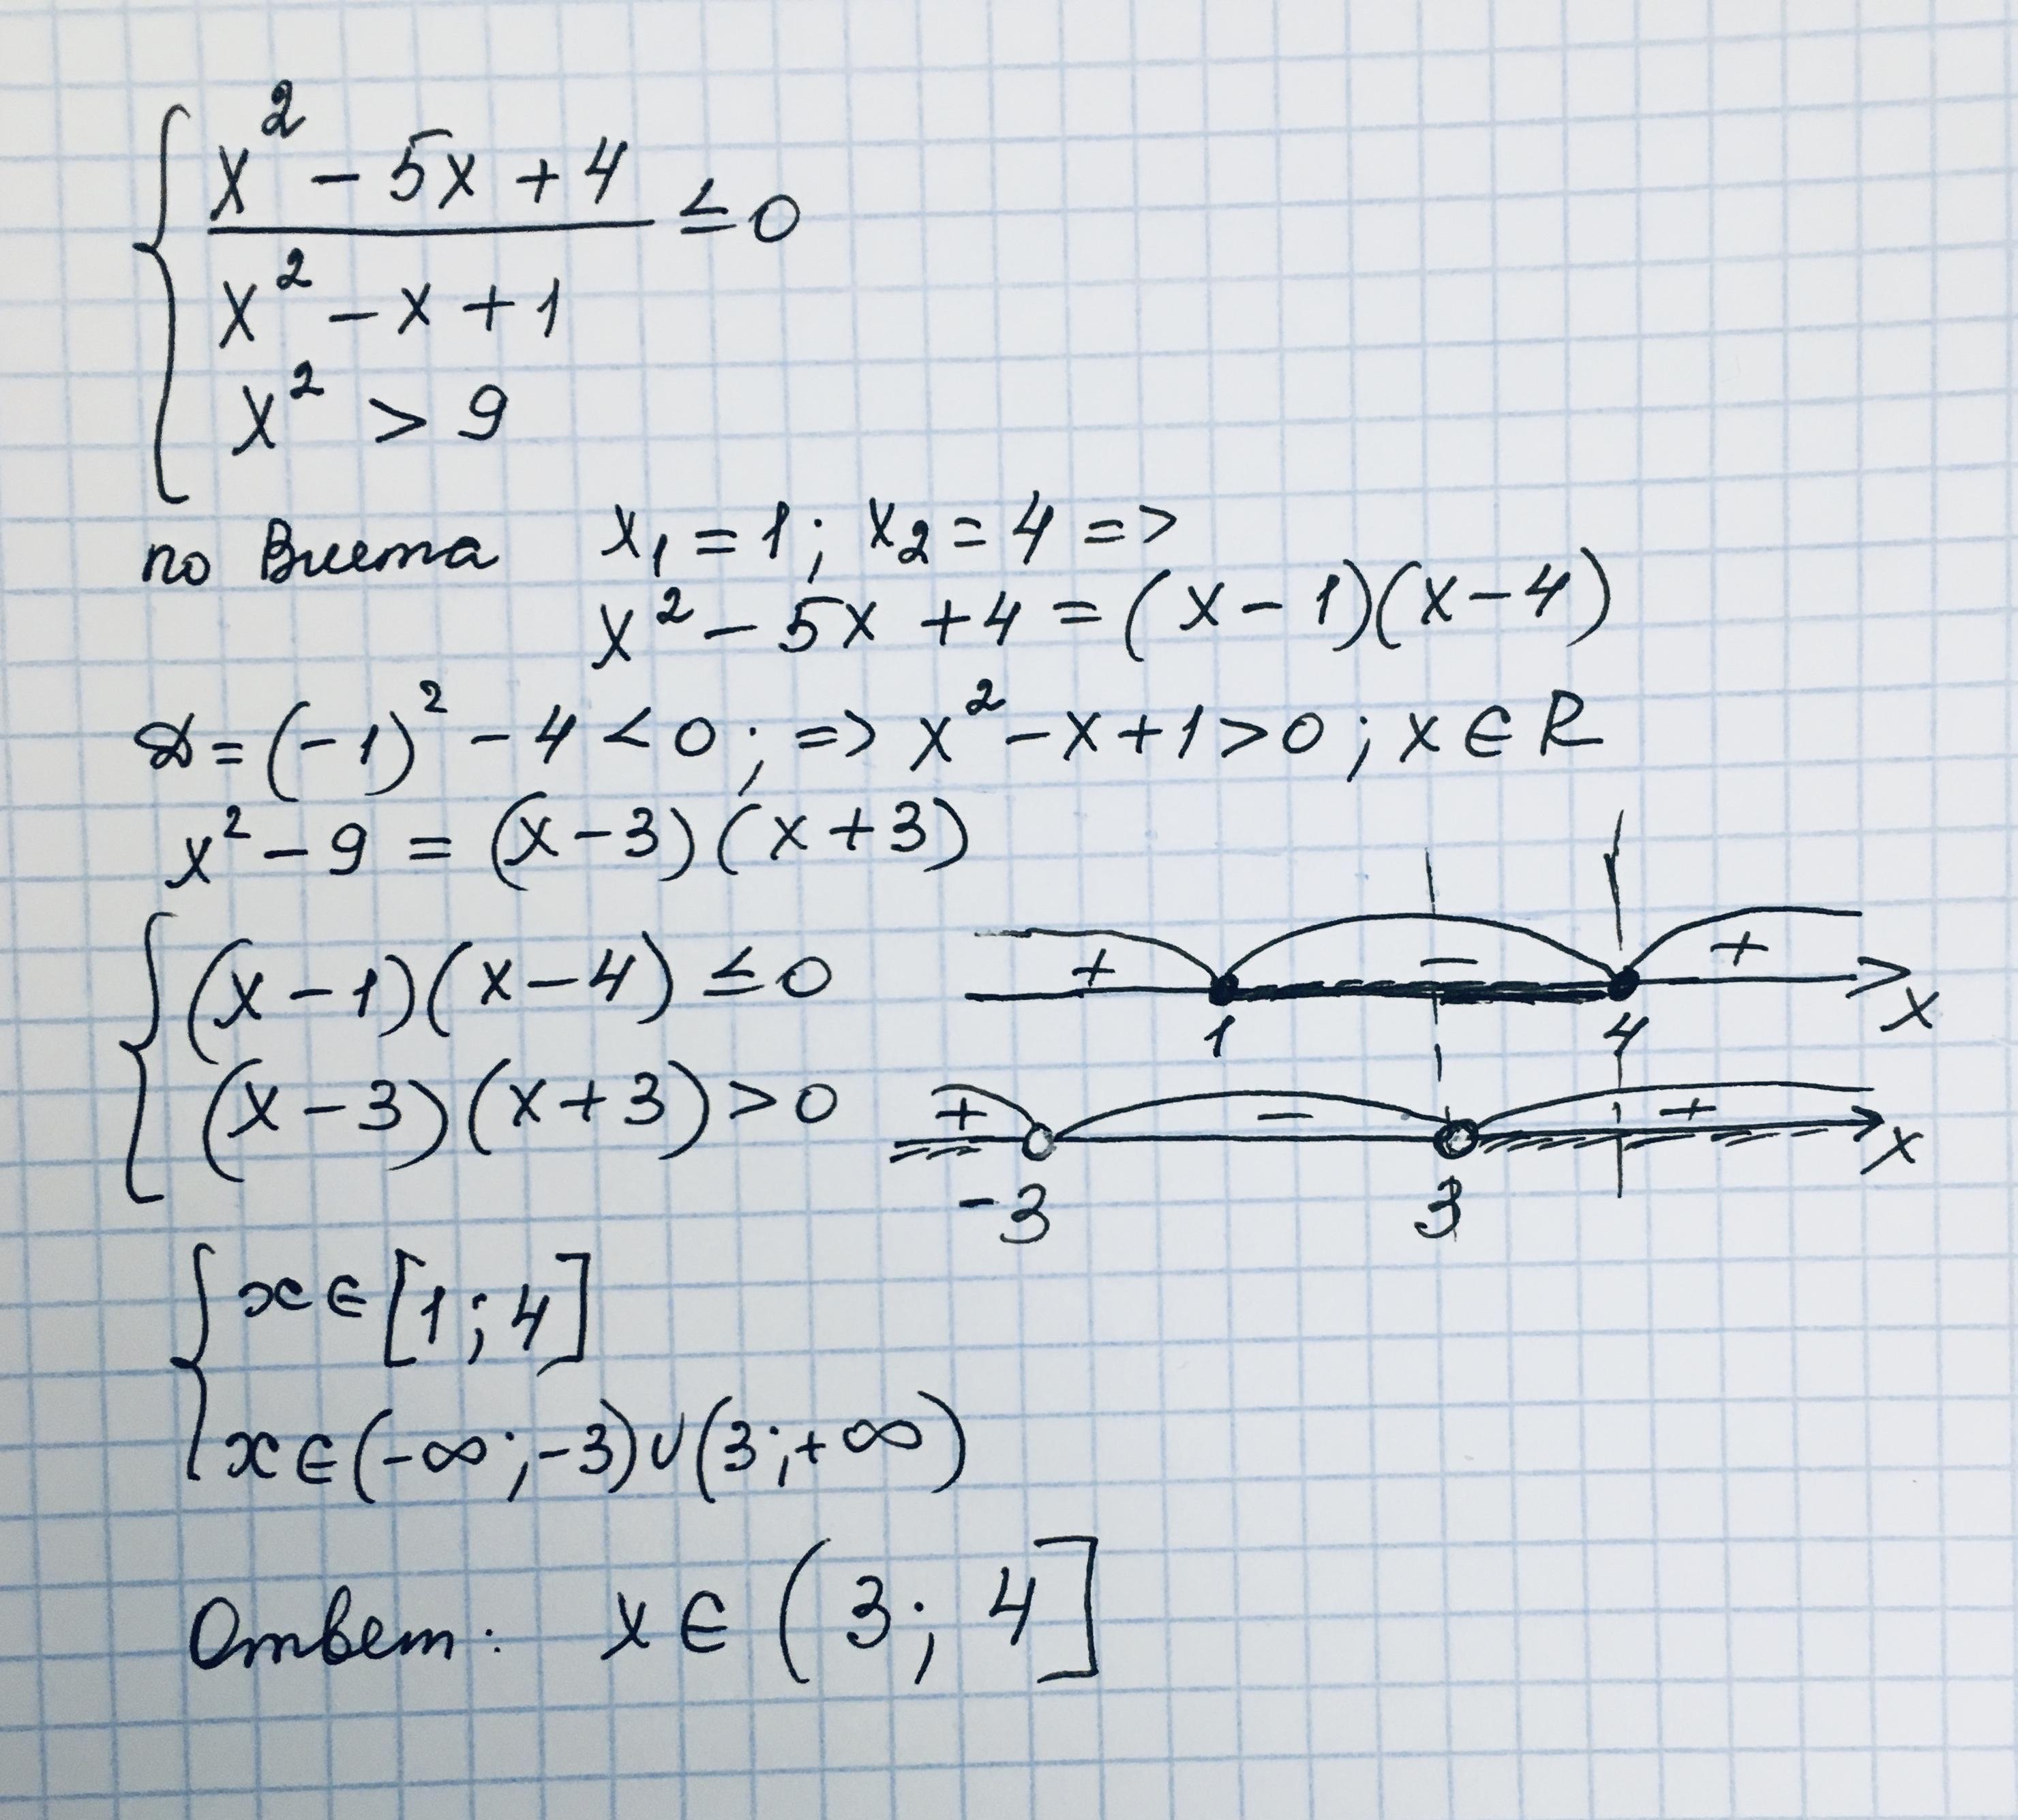 x² - 5x + 4
≤ 0
x² - x + 1
x² > 9
по Виета x₁ = 1; x₂ = 4 =>
x² - 5x + 4 = (x - 1)(x - 4)
D = (-1)² - 4 < 0; => x² - x + 1 > 0; x ∈ R
x² - 9 = (x - 3)(x + 3)
(x - 1)(x - 4) ≤ 0
+ − +
1 4 x
(x - 3)(x + 3) > 0
+ − +
-3 3 x
x ∈ [1; 4]
x ∈ (-∞; -3) ∪ (3; +∞)
Ответ: x ∈ (3; 4]